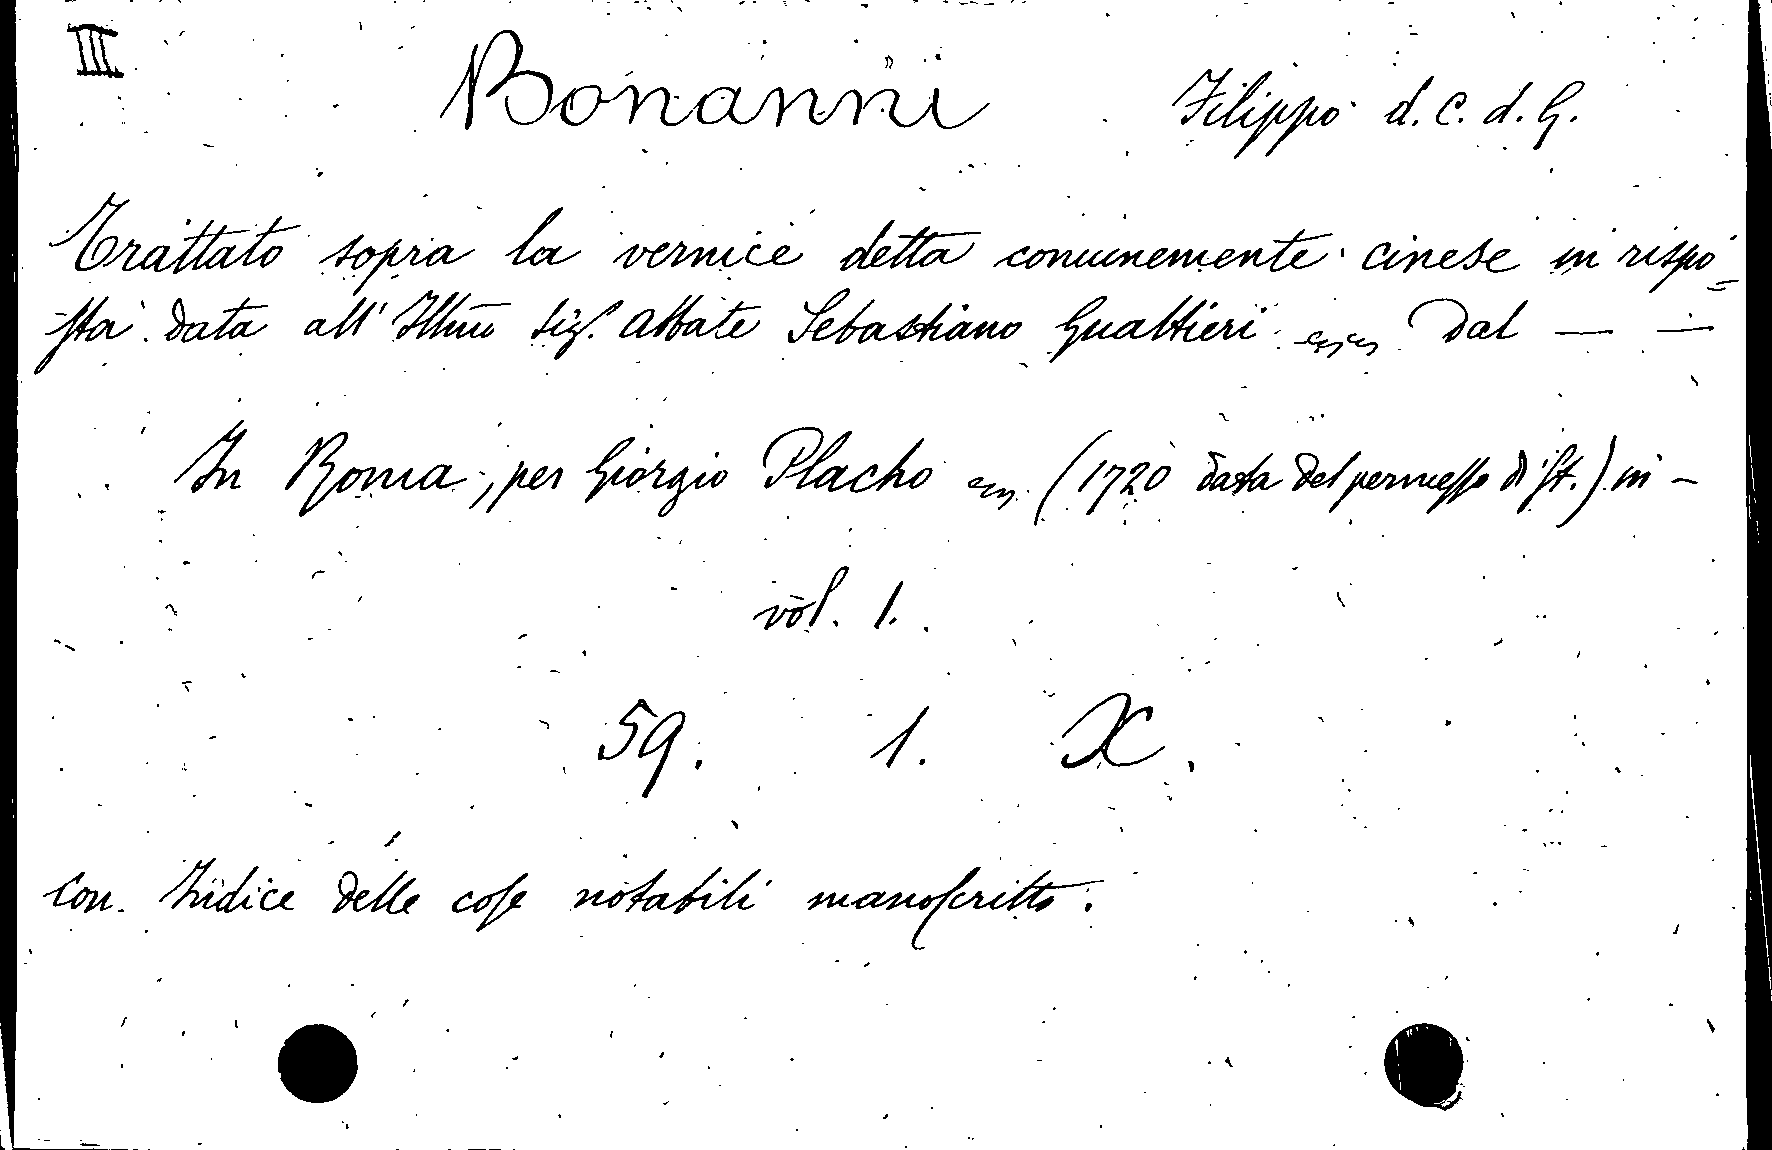 III
Bonanni Filippo d. C. d. G.
Trattato sopra la vernice detta comunemente cinese in rispo=
sta data all' Illmo sig. abbate Sebastiano Gualtieri dal — —
In Roma, per Giorgio Placho (1720 data del permesso di st.) in -
vol. 1.
59. 1. X.
Con Indice delle cose notabili manoscritto.